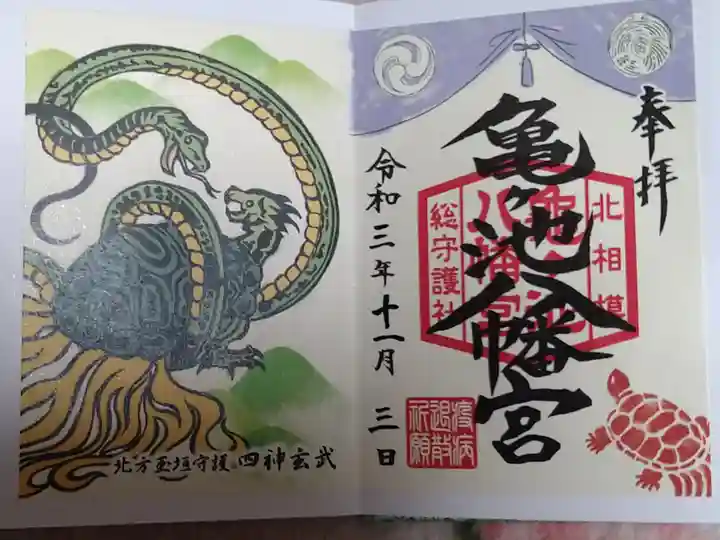 奉拝
亀ヶ池八幡宮
北相模
亀ヶ池
八幡宮
総守護社
令和三年十一月三日
疫病
退散
祈願
北方玉垣守護 四神玄武